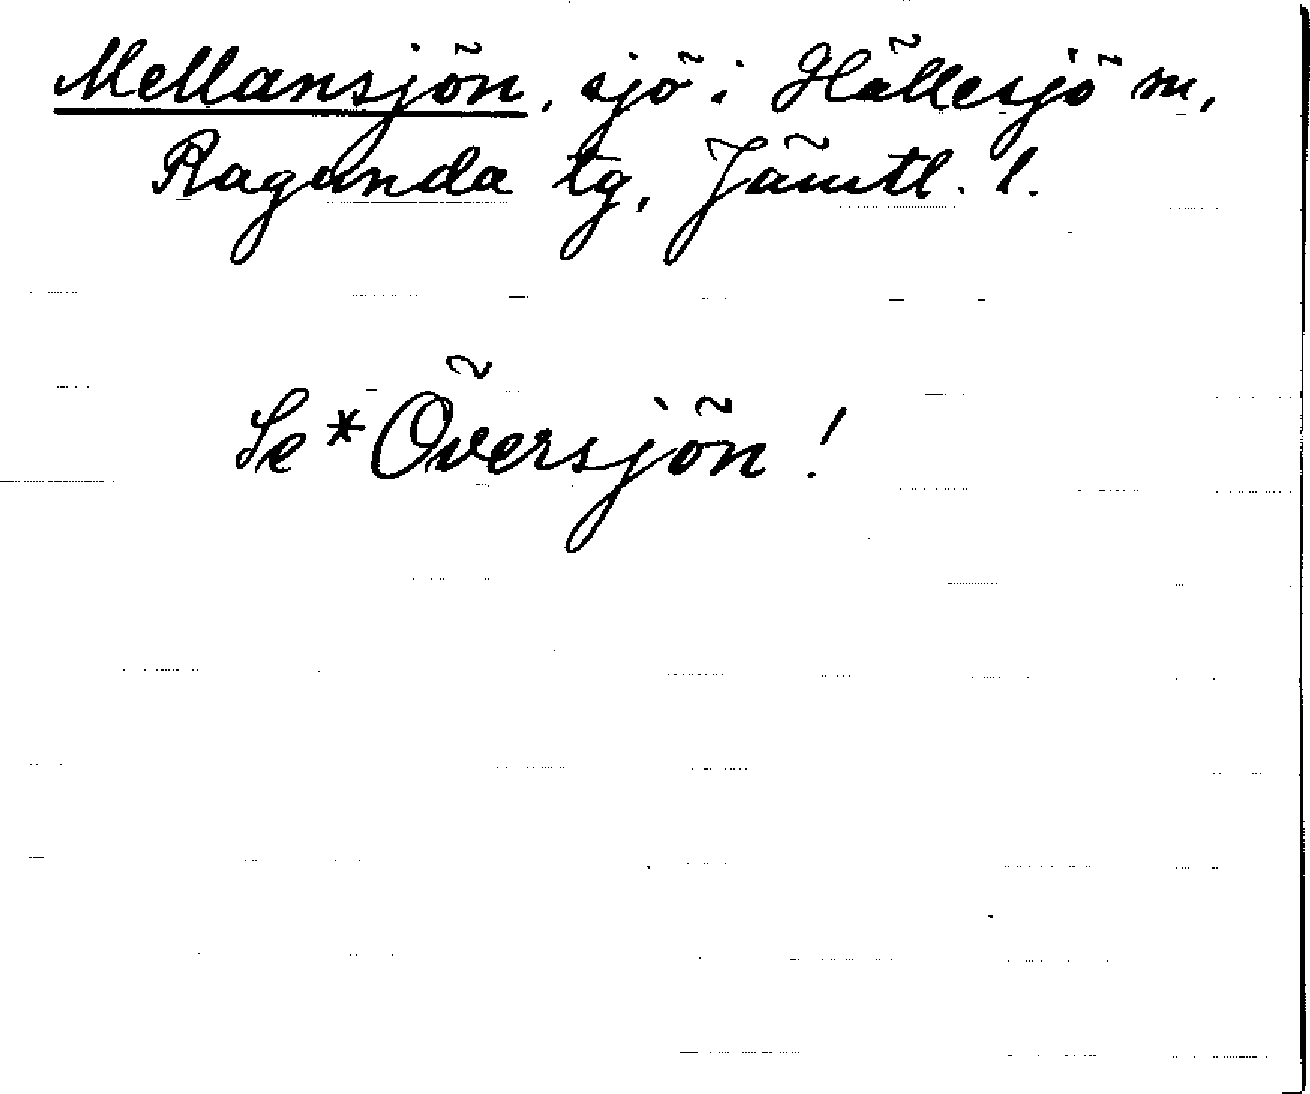 Mellansjön, sjö i Hällesjö sn,
Ragunda tg, Jämtl. l.
Se *Översjön!